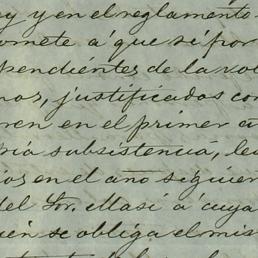 y y en el reglamento
omete á que si por
pendientes de la vol
nos, justificados con
ren en el primer a
pia subsistencia, le
ios en el año siguien
del Sor. Masi á cuya
uien se obliga el mis